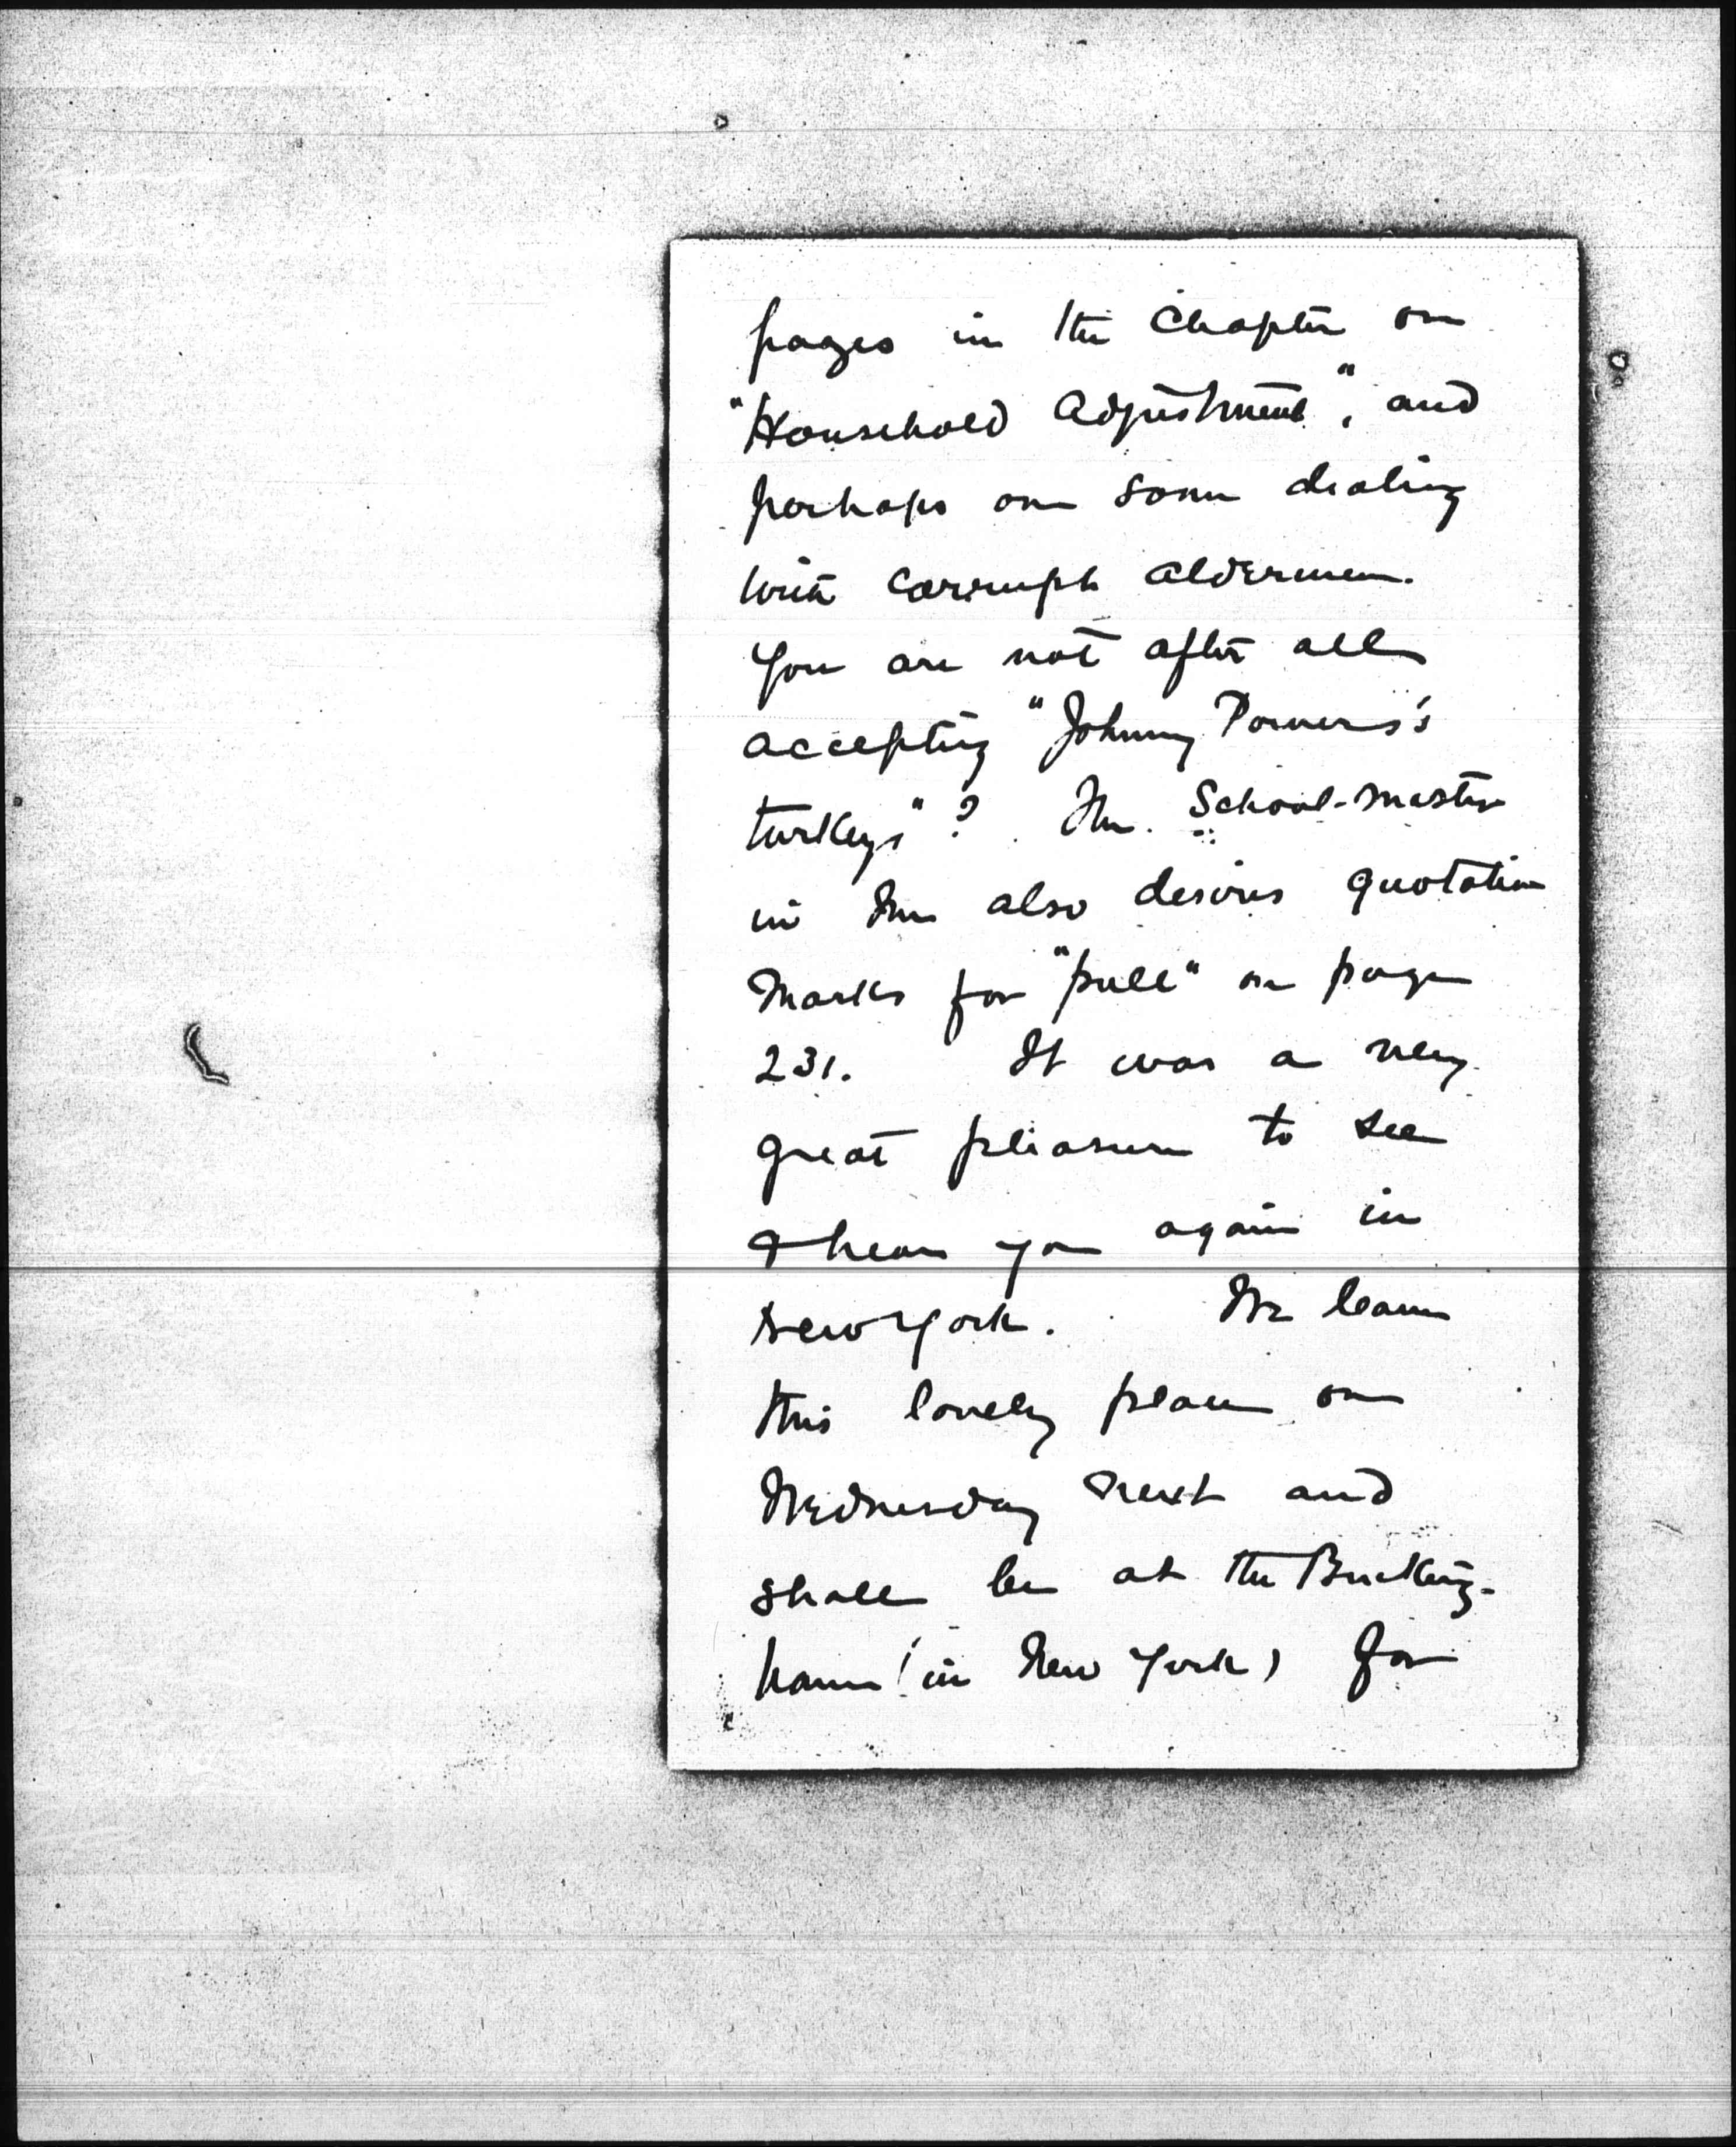 pages in the chapter on
"Household Adjustment", and
perhaps on some dealing
with corrupt aldermen.
You are not after all
accepting "Johnny Powers's
turkeys"? The School-master
in me also desires quotation
marks for "pull" on page
231. It was a very
great pleasure to see
& hear you again in
New York. We leave
this lovely place on
Wednesday next and
shall be at the Bucking-
ham (in New York) for